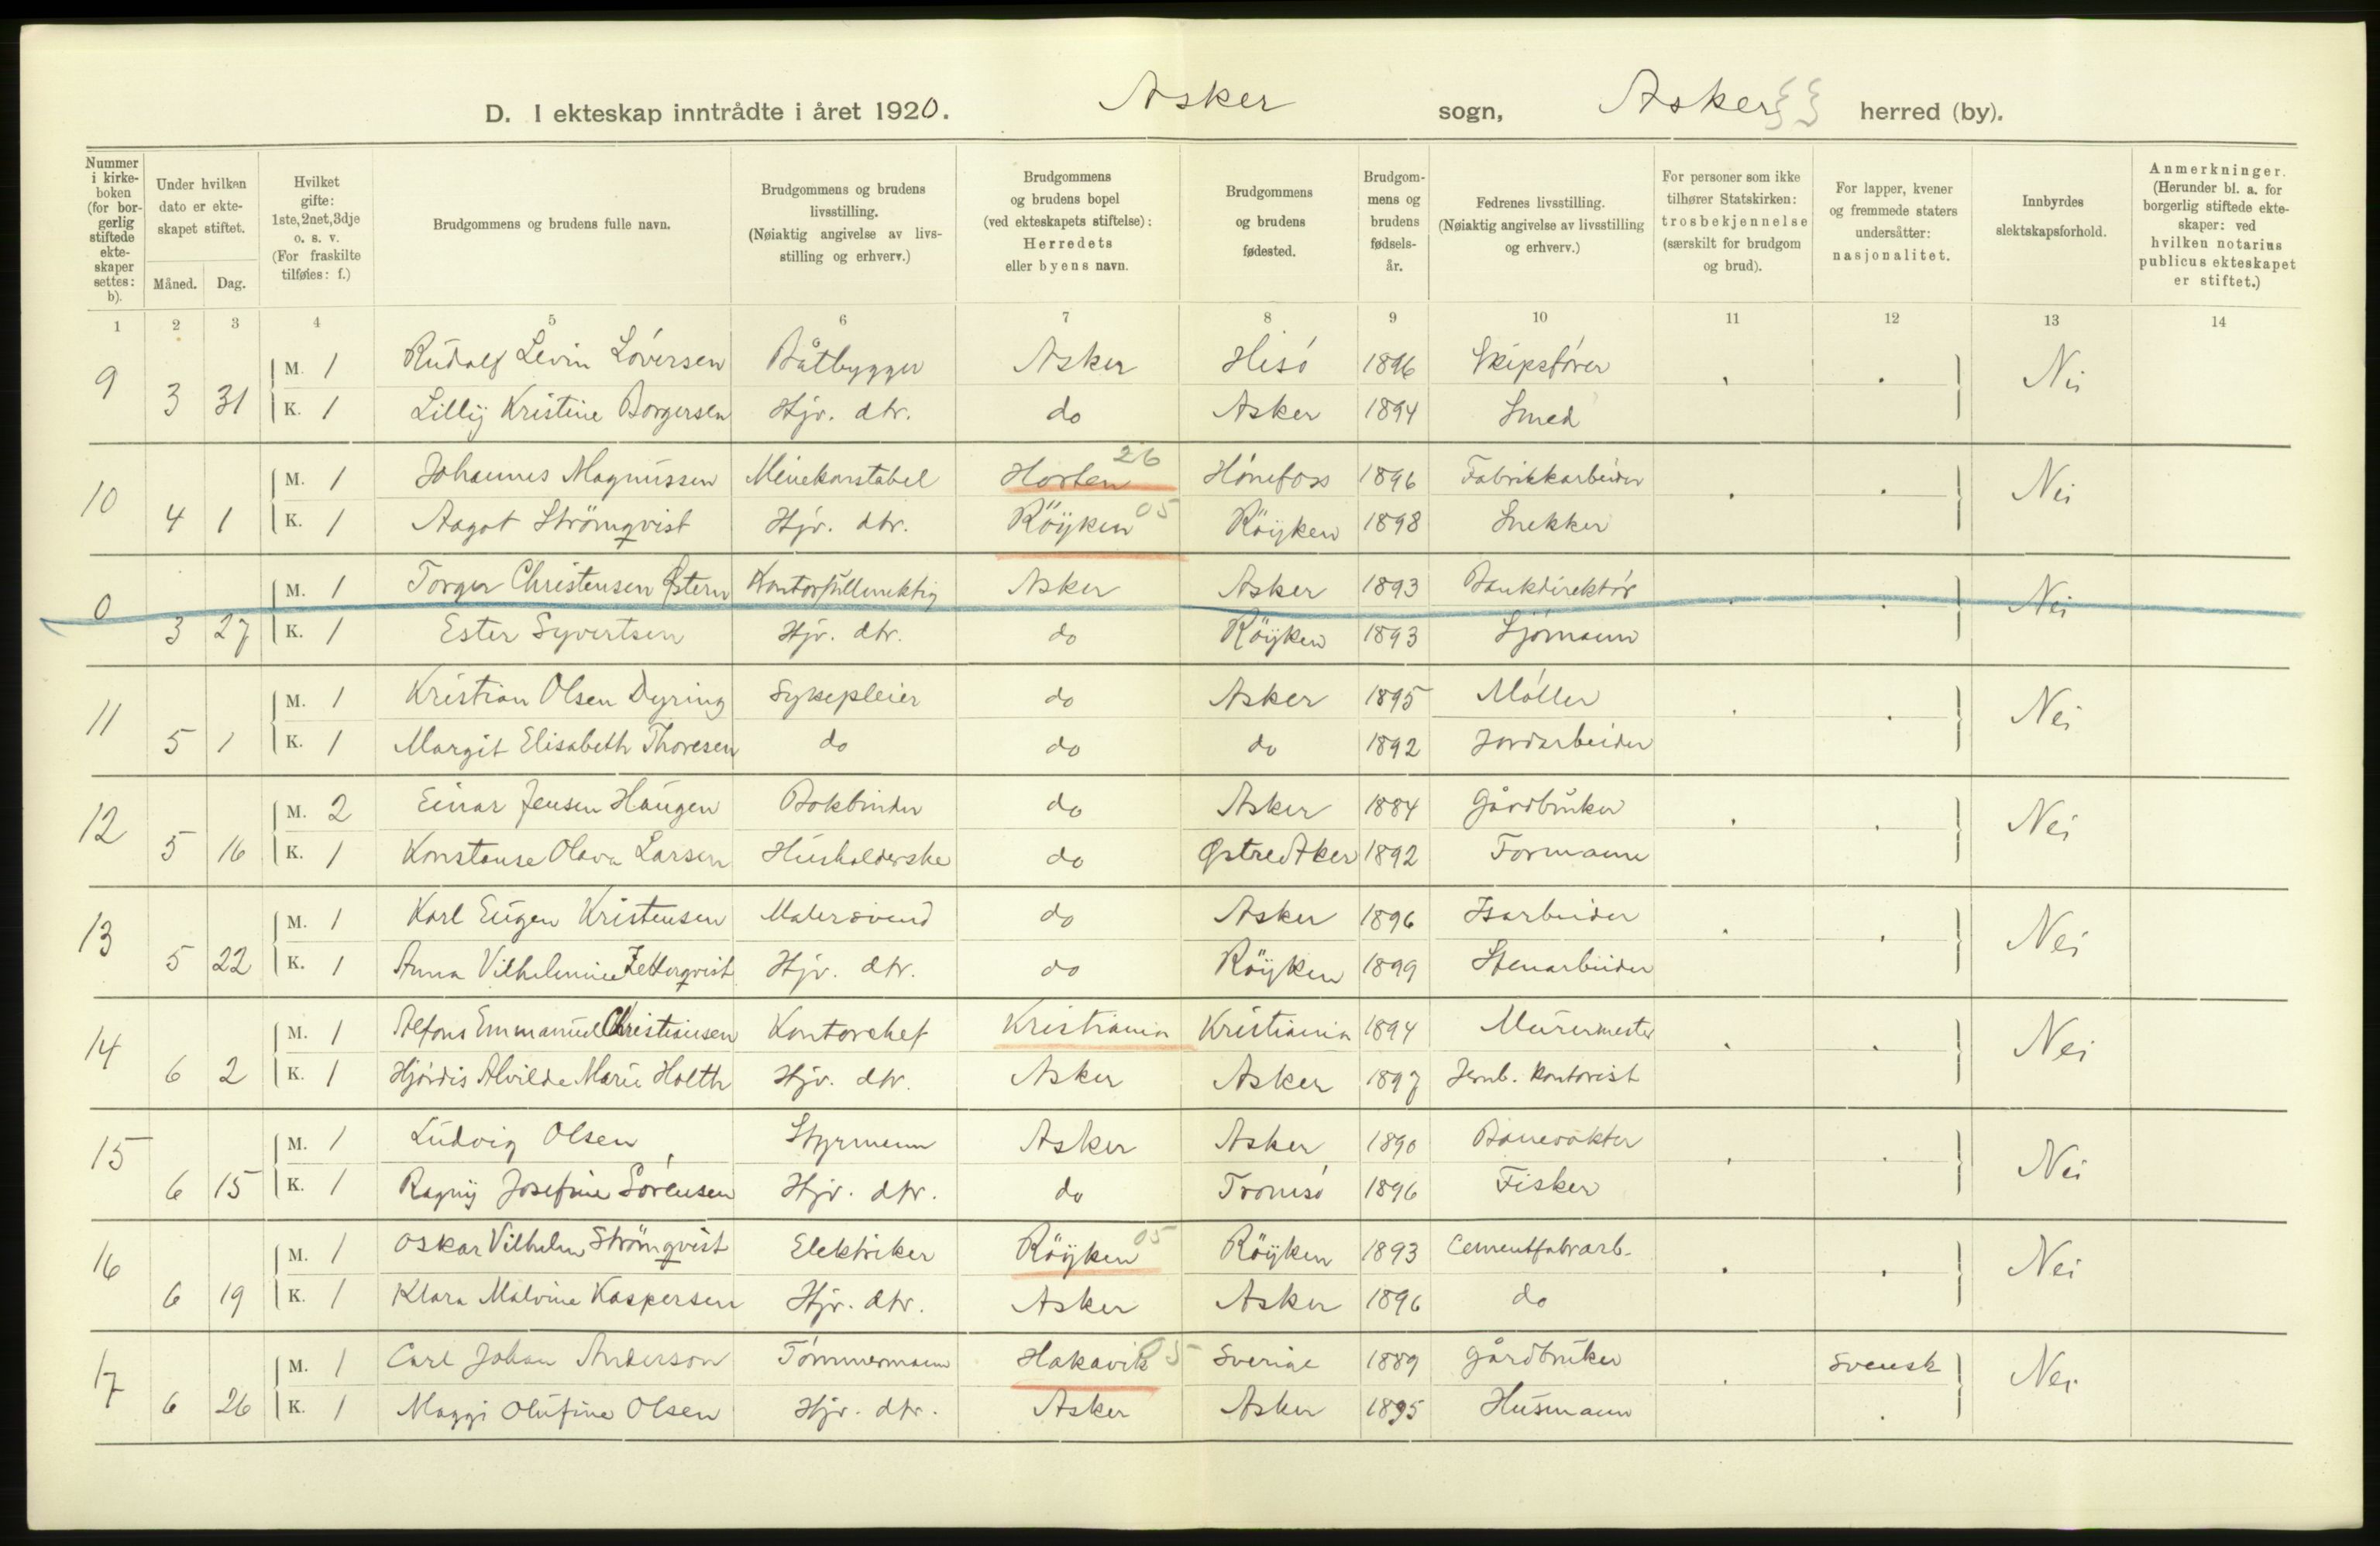 D. I ekteskap inntrådte i året 1920. Asker sogn, Asker herred (by).
Nummer i kirke-boken (for bor-gerlig stiftede ekte-skaper settes: b).
Under hvilken dato er ekte-skapet stiftet.
Måned. Dag.
Hvilket gifte: 1ste, 2net, 3dje o. s. v. (For fraskilte tilføies: f.)
Brudgommens og brudens fulle navn.
Brudgommens og brudens livsstilling. (Nøiaktig angivelse av livs-stilling og erhverv.)
Brudgommens og brudens bopel (ved ekteskapets stiftelse): Herredets eller byens navn.
Brudgommens og brudens fødested.
Brudgom-mens og brudens fødsels-år.
Fedrenes livsstilling. (Nøiaktig angivelse av livsstilling og erhverv.)
For personer som ikke tilhører Statskirken: trosbekjennelse (særskilt for brudgom og brud).
For lapper, kvener og fremmede staters undersåtter: nasjonalitet.
Innbyrdes slektskapsforhold.
Anmerkninger. (Herunder bl. a. for borgerlig stiftede ekte-skaper: ved hvilken notarius publicus ekteskapet er stiftet.)
1 2 3 4 5 6 7 8 9 10 11 12 13 14
9 M. 1 Rudolf Levin Löversen Båtbygger Asker Hisö 1896 Skipsförer Nei
3 31 K. 1 Lilly Kristine Borgersen Hjv. dtr. do Asker 1894 Smed
10 M. 1 Johannes Magnussen Minekonstabel Horten 26 Hönefoss 1896 Fabrikkarbeider Nei
4 1 K. 1 Aagot Strömqvist Hjv. dtr. Röyken 05 Röyken 1898 Snekker
0 M. 1 Torger Christensen Østern Kontorfullmektig Asker Asker 1893 Bankdirektör Nei
3 27 K. 1 Ester Syvertsen Hjv. dtr. do Röyken 1893 Sjömann
11 M. 1 Kristian Olsen Dyring Sykepleier do Asker 1895 Möller Nei
5 1 K. 1 Margit Elisabeth Thoresen do do do 1892 Jordarbeider
12 M. 2 Einar Jensen Haugen Bokbinder do Asker 1884 Gårdbruker Nei
5 16 K. 1 Konstanse Olava Larsen Husholderske do Østre Aker 1892 Formann
13 M. 1 Karl Eugen Kristensen Malersvend do Asker 1896 Isarbeider Nei
5 22 K. 1 Anna Vilhelmine Zetterqvist Hjv. dtr. do Röyken 1899 Stenarbeider
14 M. 1 Alfons Emmanuel Christiansen Kontorchef Kristiania Kristiania 1894 Murermester Nei
6 2 K. 1 Hjördis Alvilde Marie Holth Hjv. dtr. Asker Asker 1897 Jernb. kontorist
15 M. 1 Ludvig Olsen Styrmann Asker Asker 1890 Banevokter Nei
6 15 K. 1 Ragny Josefine Sörensen Hjv. dtr. do Tromsö 1896 Fisker
16 M. 1 Oskar Vilhelm Strömqvist Elektriker Röyken 05 Röyken 1893 Cementfabrarb. Nei
6 19 K. 1 Klara Malvine Kaspersen Hjv. dtr. Asker Asker 1896 do
17 M. 1 Carl Johan Anderson Tömmermann Hakavik 05 Sverige 1889 Gårdbruker Svensk Nei
6 26 K. 1 Maggi Olufine Olsen Hjv. dtr. Asker Asker 1895 Husmann